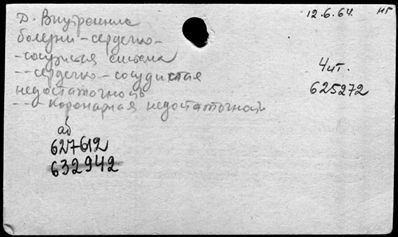 Д. Внутренние 12.6.64. нг
болезни - сердечно-
- сосудистая система
- - сердечно - сосудистая 4 ит.
недостаточность 625272
- - - Коронарная недостаточность
аб
627612
632942